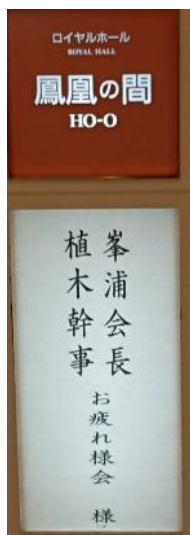 ロイヤルホール
ROYAL HALL
鳳凰の間
HO-O
峯浦会長
植木幹事
お疲れ様会 様